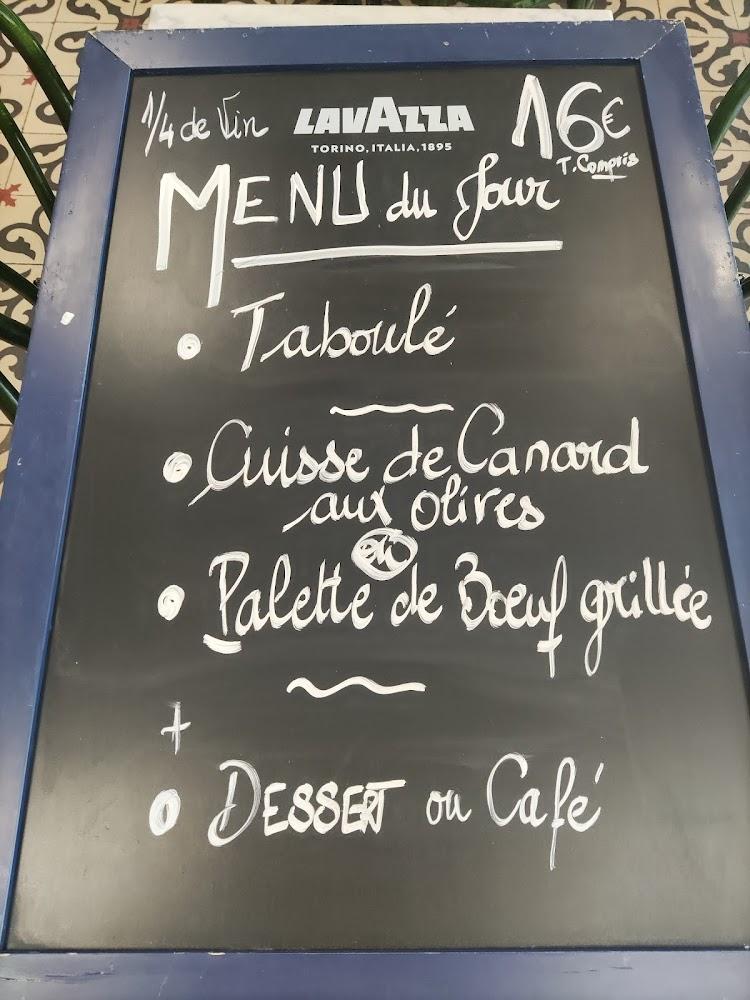 1/4 de Vin
LAVAZZA
TORINO, ITALIA, 1895
16€
T. Compris
MENU du Jour
Taboulé
Cuisse de Canard
aux olives
ou
Palette de Boeuf grillée
+
DESSERT ou Café